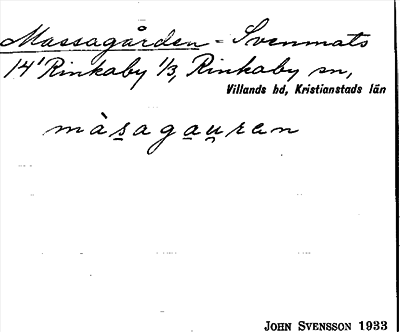 Massagården = Svenmats
14¹ Rinkaby 1/3, Rinkaby sn,
Villands hd, Kristianstads län
màs̱aga̱u̯ran
JOHN SVENSSON 1933